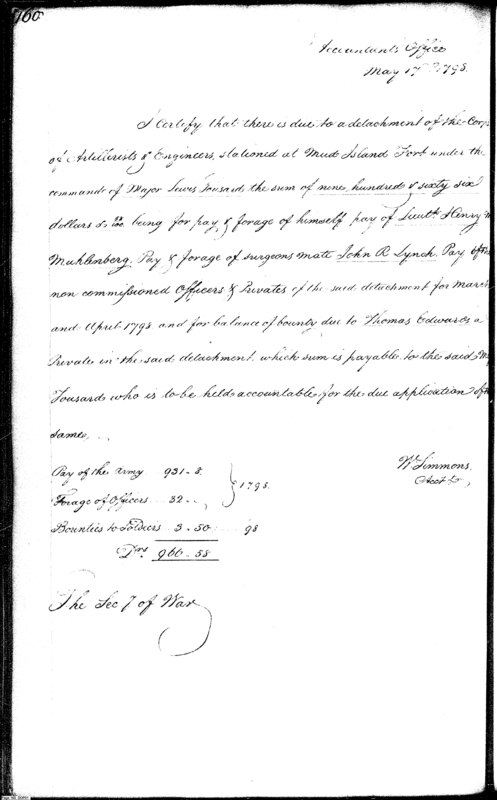 160
Accountants Office
May 17th 1798.
I certify that there is due to a detachment of the Corps
of Artillerists & Engineers, stationed at Mud Island Fort under the
command of Major Lewis Tousard the sum of nine hundred & sixty six
dollars & 58/100 being for pay & forage of himself pay of Lieutt. Henry M
Muhlenberg, Pay & forage of surgeons mate John R Lynch, Pay of the
non commissioned Officers & Privates of the said detachment for March
and April 1798 and for balance of bounty due to Thomas Edwards a
Private in the said detachment, which sum is payable to the said Mr
Tousard who is to be held accountable for the due application of the
same,
Wm Simmons.
Acct
Pay of the Army 931-8. } 1798
Forage of Officers 32-,
Bounties to Soldiers 3-50 98
Drs. 966-58
The Secy of War